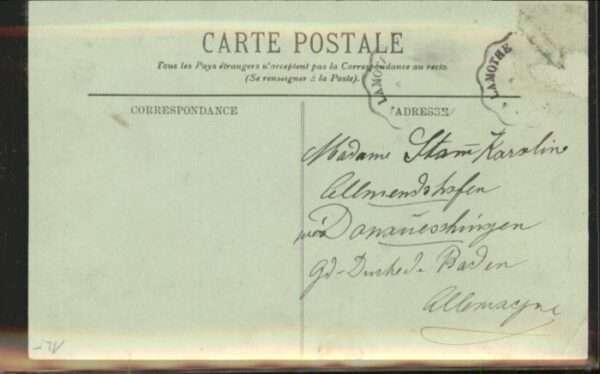 CARTE POSTALE
Tous les Pays étrangers n'acceptent pas la Correspondance au recto
(Se renseigner à la Poste).
CORRESPONDANCE
ADRESSE
LAMOTHE
LAMOTHE
Madame Stam̄ Karoline
Allmendshofen
via Donaueschingen
Gd-Duché de Baden
Allemagne